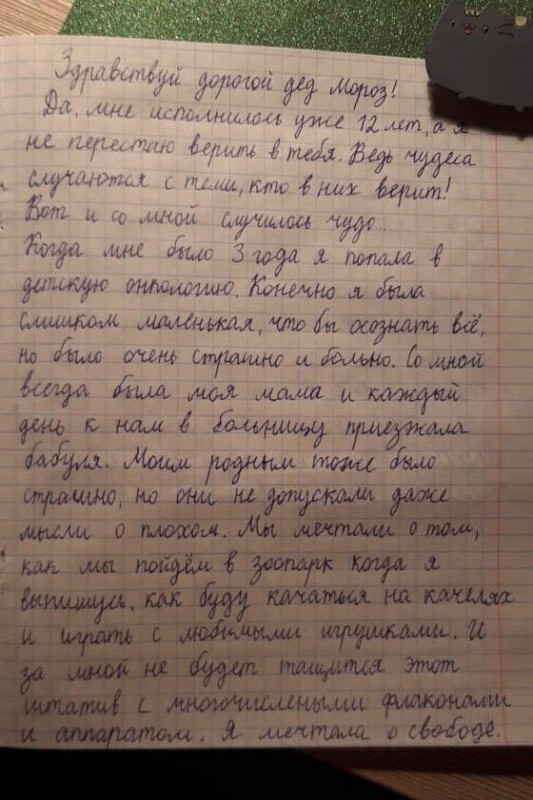 Здравствуй дорогой дед Мороз!
Да, мне исполнилось уже 12 лет, а я
не перестаю верить в тебя. Ведь чудеса
случаются с теми, кто в них верит!
Вот и со мной случилось чудо...
Когда мне было 3 года я попала в
детскую онкологию. Конечно я была
слишком маленькая, что бы осознать всё,
но было очень страшно и больно. Со мной
всегда была моя мама и каждый
день к нам в больницу приезжала
бабуля. Моим родным тоже было
страшно, но они не допускали даже
мысли о плохом. Мы мечтали о том,
как мы пойдём в зоопарк когда я
выпишусь, как буду качаться на качелях
и играть с любимыми игрушками. И
за мной не будет тащится этот
штатив с многочислеными флаконами
и аппаратом. Я мечтала о свободе.